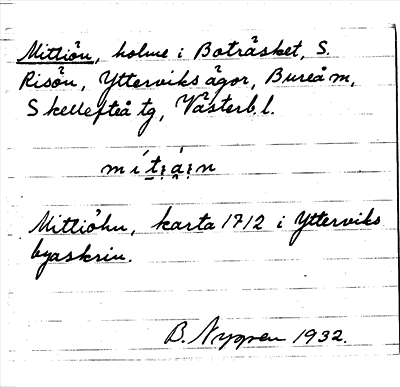 Mittiön, holme i Boträsket, S.
Risön, Ytterviks ägor, Bureå m,
Skellefteå tg, Västerb.l.
Mittiöhn, karta 1712 i Ytterviks
byaskrin.
B. Nygren 1932.